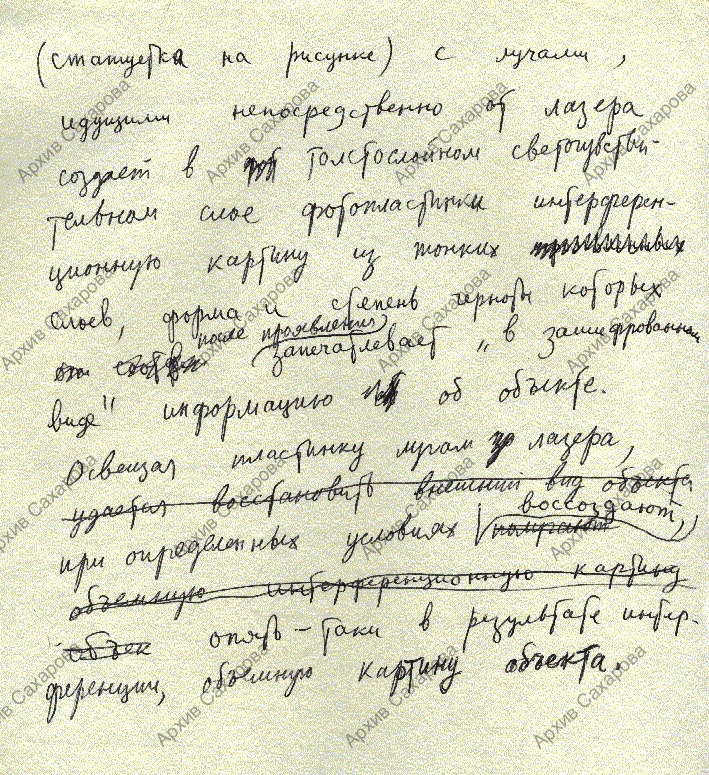 (статуетка на рисунке) с лучами,
идущими непосредственно от лазера
создает в толстослойном светочувстви-
тельном слое фотопластинки интерферен-
ционную картину из тонких
слоев, форма и степень черноты которых
после проявления
запечатлевает „в зашифрованном
виде" информацию об объекте.
Освещая пластинку лучам лазера,
удается восстановить внешний вид объекта
воссоздают,
при определенных условиях
объемную интерференционную картину
объек опять-таки в результате интер-
ференции, объемную картину объекта.
Архив Сахарова